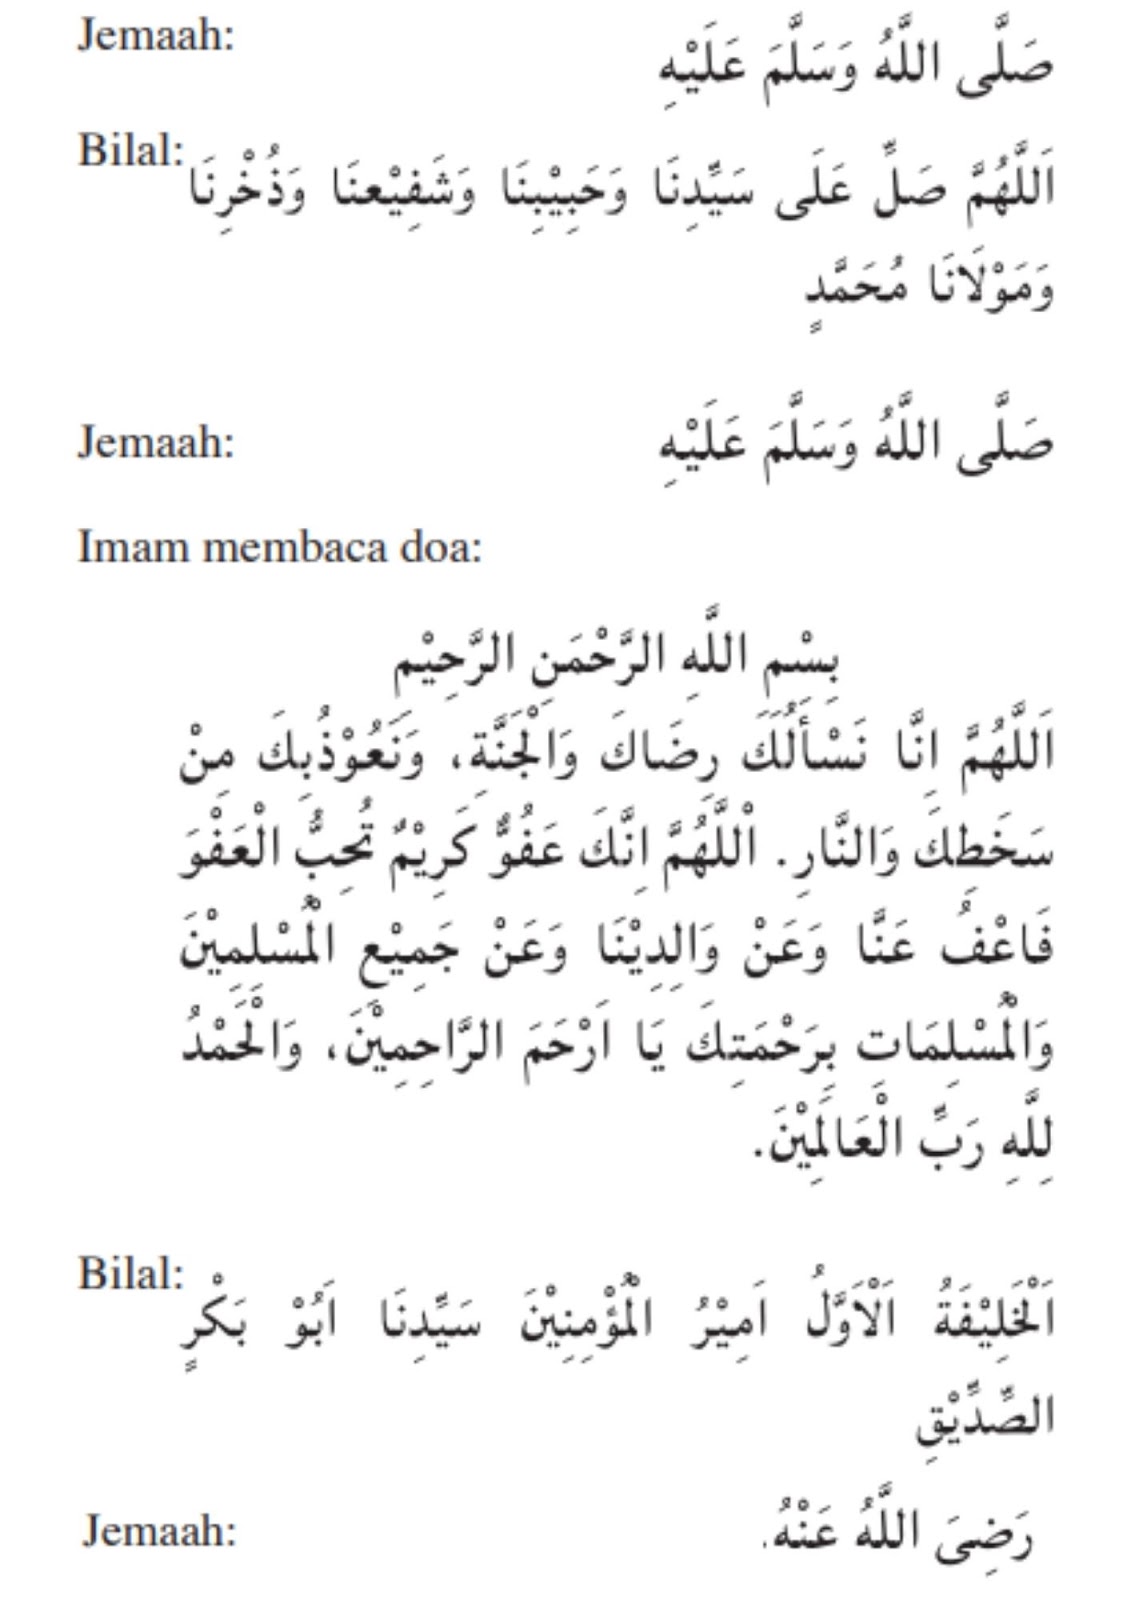 Jemaah: صَلَّى اللَّهُ وَسَلَّمَ عَلَيْهِ
Bilal: اَللَّهُمَّ صَلِّ عَلَى سَيِّدِنَا وَحَبِيْبِنَا وَشَفِيْعِنَا وَذُخْرِنَا
وَمَوْلَانَا مُحَمَّدٍ
Jemaah: صَلَّى اللَّهُ وَسَلَّمَ عَلَيْهِ
Imam membaca doa:
بِسْمِ اللَّهِ الرَّحْمَنِ الرَّحِيْمِ
اَللَّهُمَّ اِنَّا نَسْأَلُكَ رِضَاكَ وَالْجَنَّةِ، وَنَعُوْذُبِكَ مِنْ
سَخَطِكَ وَالنَّارِ. اْللَّهُمَّ اِنَّكَ عَفُوٌّ كَرِيْمٌ تُحِبُّ الْعَفْوَ
فَاعْفُ عَنَّا وَعَنْ وَالِدِيْنَا وَعَنْ جَمِيْعِ الْمُسْلِمِيْنَ
وَالْمُسْلِمَاتِ بِرَحْمَتِكَ يَا اَرْحَمَ الرَّاحِمِيْنَ، وَالْحَمْدُ
لِلَّهِ رَبِّ الْعَالَمِيْنَ.
Bilal: اَلْخَلِيْفَةُ اَلْاَوَّلُ اَمِيْرُ الْمُؤْمِنِيْنَ سَيِّدِنَا اَبُوْ بَكْرٍ
الصِّدِّيْقِ
Jemaah: رَضِىَ اللَّهُ عَنْهُ.